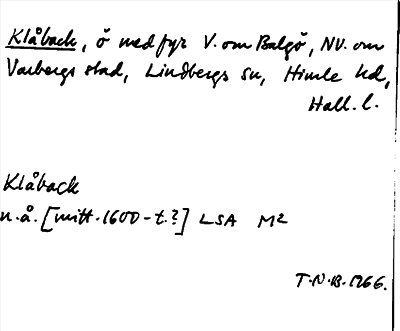 Klåback, ö med fyr V. om Balgö, NV. om
Varbergs stad, Lindbergs sn, Himle hd,
Hall. l.
Klåback
n.å. [mitt. 1600-t.?] LSA M2
T.N.B. 1966.